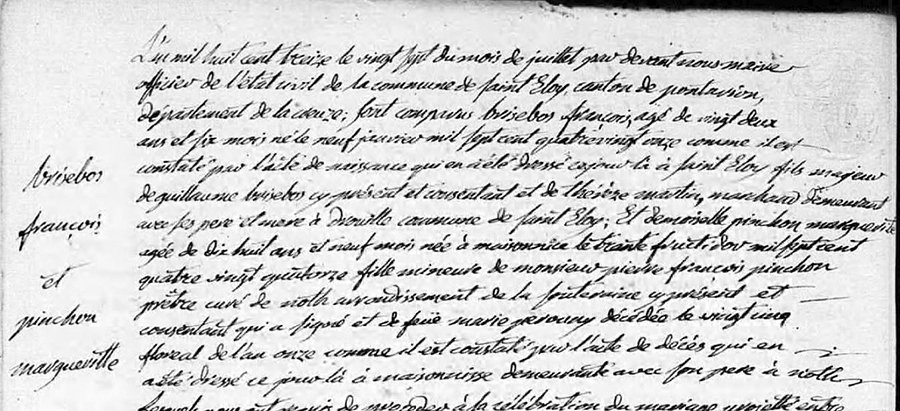 L'an mil huit cent treize le vingt sept du mois de juillet par devant nous maire
officier de l'état civil de la commune de saint Eloy, canton de pontarion,
département de la creuze; sont comparus brisebos françois, agé de vingt deux
ans et six mois né le neuf janvier mil sept cent quatre vingt onze comme il est
constaté par l'acte de naissance qui en a été dressé ce jour là à saint Eloy fils majeur
de guillaume brisebos cy présent et consentant et de thérèze martin, marchand demeurant
avec ses pere et mere à drouille commune de saint Eloy; Et demoiselle pinchon margueritte
agée de dix huit ans et neuf mois née à maisonnice le trante fructidor mil sept cent
quatre vingt quatorze fille mineure de monsieur pierre françois pinchon
prêtre curé de noth arrondissement de la souterraine cy présent et
consentant qui a signé et de feüe marie décédée le vingt cinq
floreal de l'an onze comme il est constaté par l'acte de décés qui en
a été dressé ce jour là à maisonnisse demeurante avec son pere à noth
brisebos
françois
et
pinchon
margueritte